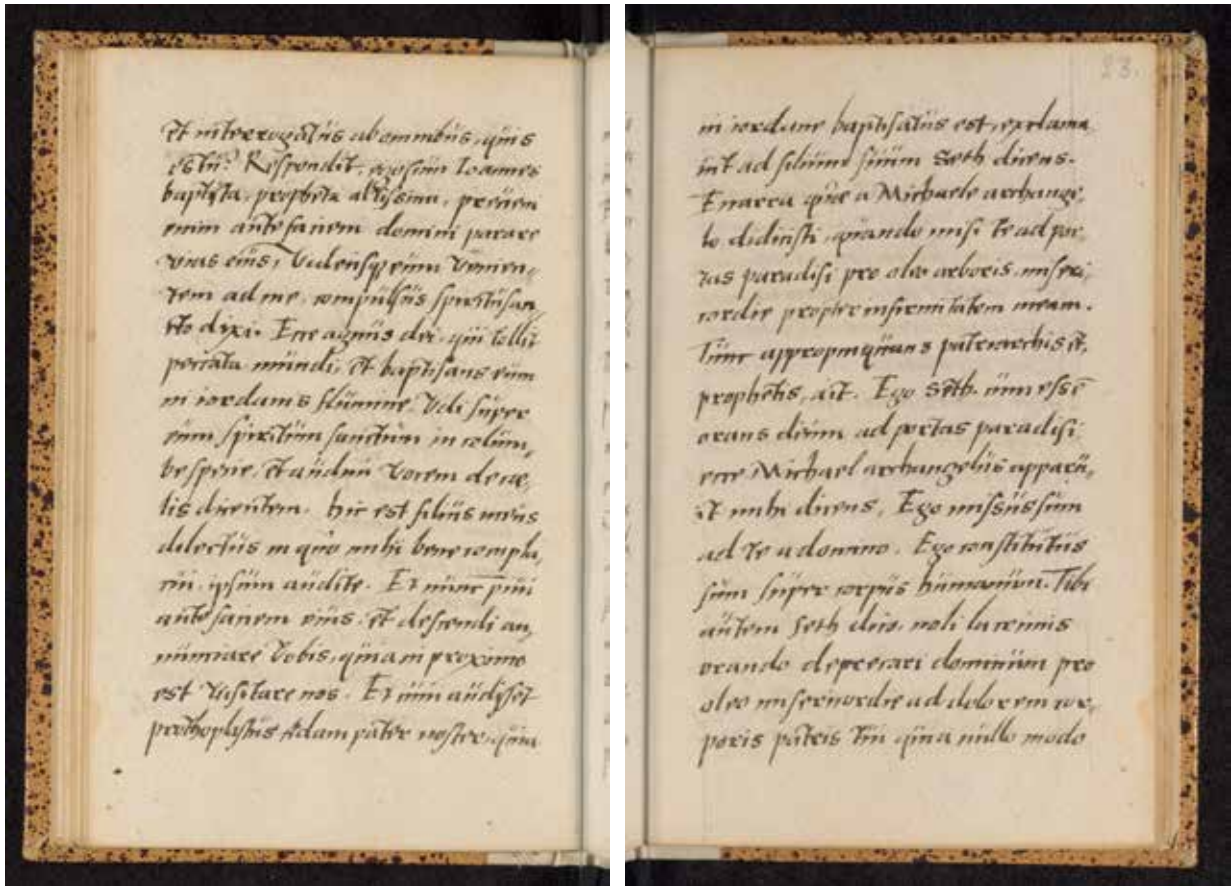 et interrogatus ab omnibus, quis
es tu? Respondit, ego sum Ioannes
baptista, propheta altissimi, preiens
enim ante faciem domini parare
vias eius, Vidensq; eum venien,
tem ad me, compulsus spiritu san
cto dixi. Ecce agnus dei, qui tollit
peccata mundi, et baptisans eum
in iordanis flumine, vidi super
eum spiritum sanctum in colum,
be specie, et audiui vocem de cæ,
lis dicentem. hic est filius meus
dilectus in quo mihi bene compla,
cui, ipsum audite. Et nunc piui
ante faciem eius, et descendi an,
nunciare vobis, quia in proximo
est visitare nos. Et cum audisset
prothoplastus Adam pater noster, quia
23.
in iordane baptisatus est, exclama
uit ad filium suum Seth dicens.
Enarra que a Michaele archange,
lo didicisti, quando misi te ad por,
tas paradisi pro oleo arboris miseri,
cordie propter infirmitatem meam.
Tunc appropinquans patriarchis et,
prophetis, ait. Ego Seth. cum esse
orans deum ad portas paradisi
ecce Michael archangelus apparu,
it mihi dicens, Ego missus sum
ad te a domino. Ego constitutus
sum super corpus humanum. Tibi
autem Seth dico, noli lacrimis
orando deprecari dominum pro
oleo misericordie ad dolorem cor,
poris patris tui quia nullo modo